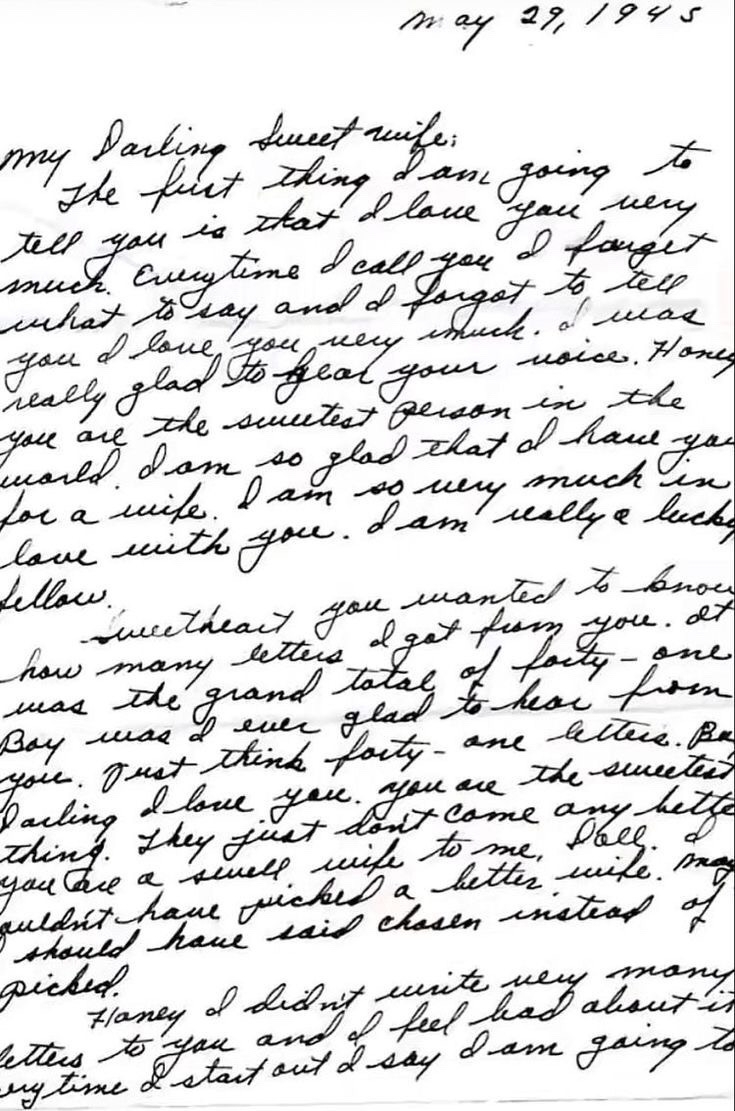 May 29, 1945
My Darling Sweet wife:
The first thing I am going to
tell you is that I love you very
much. Everytime I call you I forget
what to say and I forgot to tell
you I love you very much. I was
really glad to hear your voice. Honey
you are the sweetest person in the
world. I am so glad that I have you
for a wife. I am so very much in
love with you. I am really a lucky
fellow.
Sweetheart you wanted to know
how many letters I got from you. It
was the grand total of forty-one
Boy was I ever glad to hear from
you. Just think forty-one letters.
Darling I love you. You are the sweetest
thing. They just don't come any bette
you are a swell wife to me, Doll. I
ouldn't have picked a better wife. May
I should have said chosen instead of
picked.
Honey I didn't write very many
letters to you and I feel bad about it
erytime I start out I say I am going to